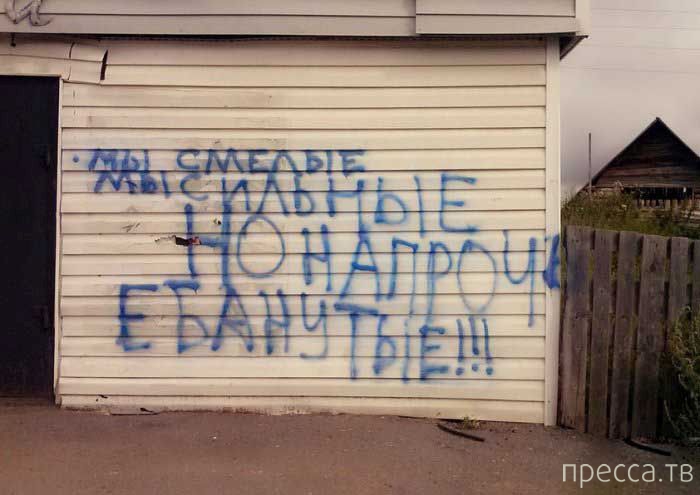 МЫ СМЕЛЫЕ
МЫ СИЛЬНЫЕ
НО НАПРОЧЬ
ЕБАНУТЫЕ!!!
пресса.тв